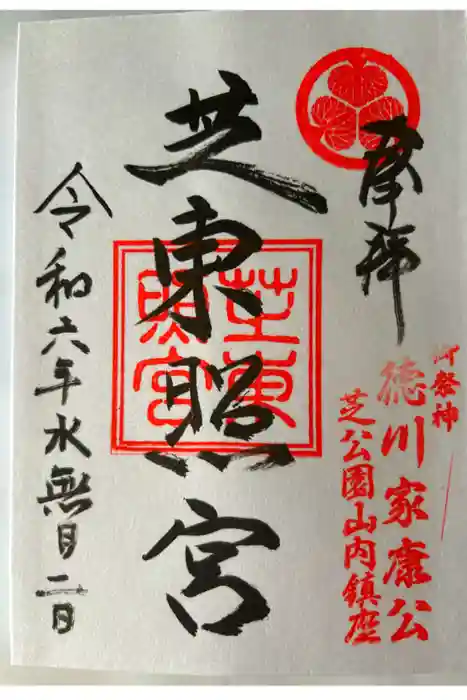 奉拝
御祭神
徳川家康公
芝公園山内鎮座
芝東照宮
芝東照宮
令和六年水無月二日